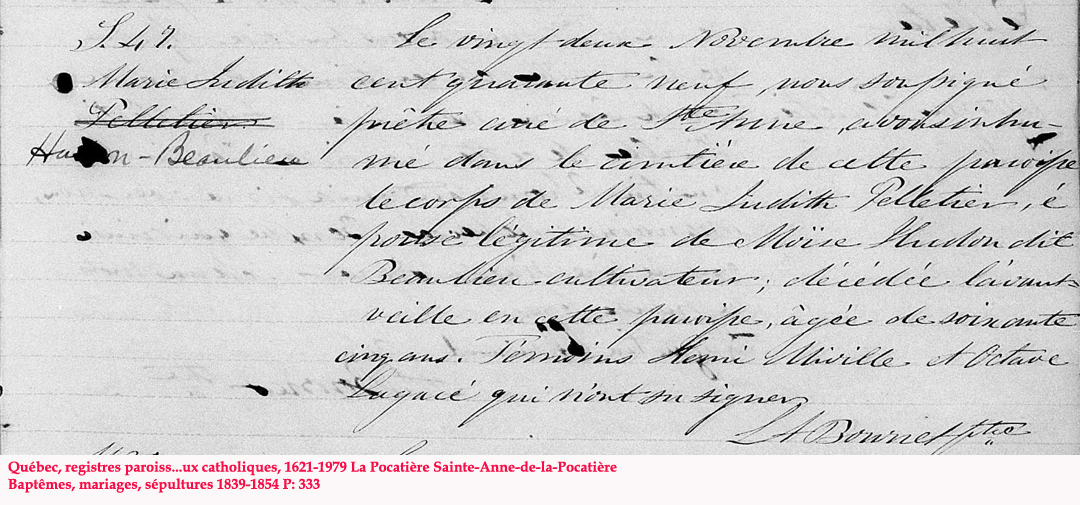 S. 47.
Marie Judith
Pelletier
Hudon-Beaulieu
Le vingt deux Novembre mil huit
cent quarante neuf, nous soussigné
prêtre curé de Ste Anne, avons inhu-
mé dans le cimtière de cette paroisse
le corps de Marie Judith Pelletier, é
pouse légitime de Moïse Hudon dit
Beaulieu cultivateur; décédée l'avant-
veille en cette paroisse, âgée de soixante
cinq ans. Témoins Henri Miville et Octave
Lagacé qui n'ont su signer
Ptre
Québec, registres paroiss...ux catholiques, 1621-1979 La Pocatière Sainte-Anne-de-la-Pocatière
Baptêmes, mariages, sépultures 1839-1854 P: 333